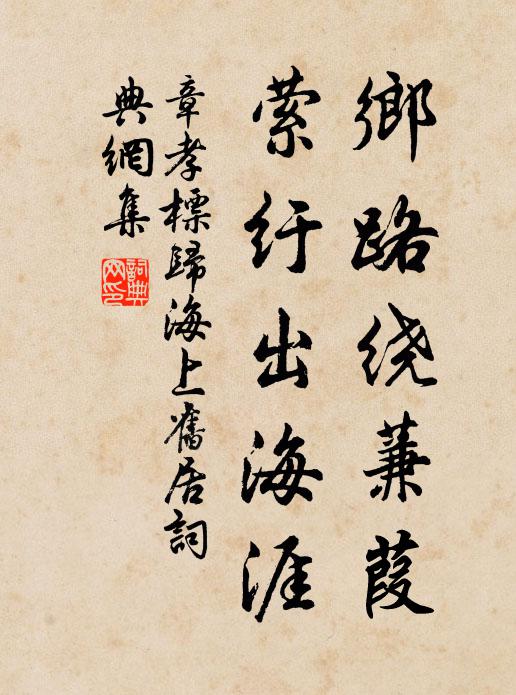 鄉路绕蒹葭
萦纡出海涯
章孝標歸海上舊居詞
典網集
詞典
网印